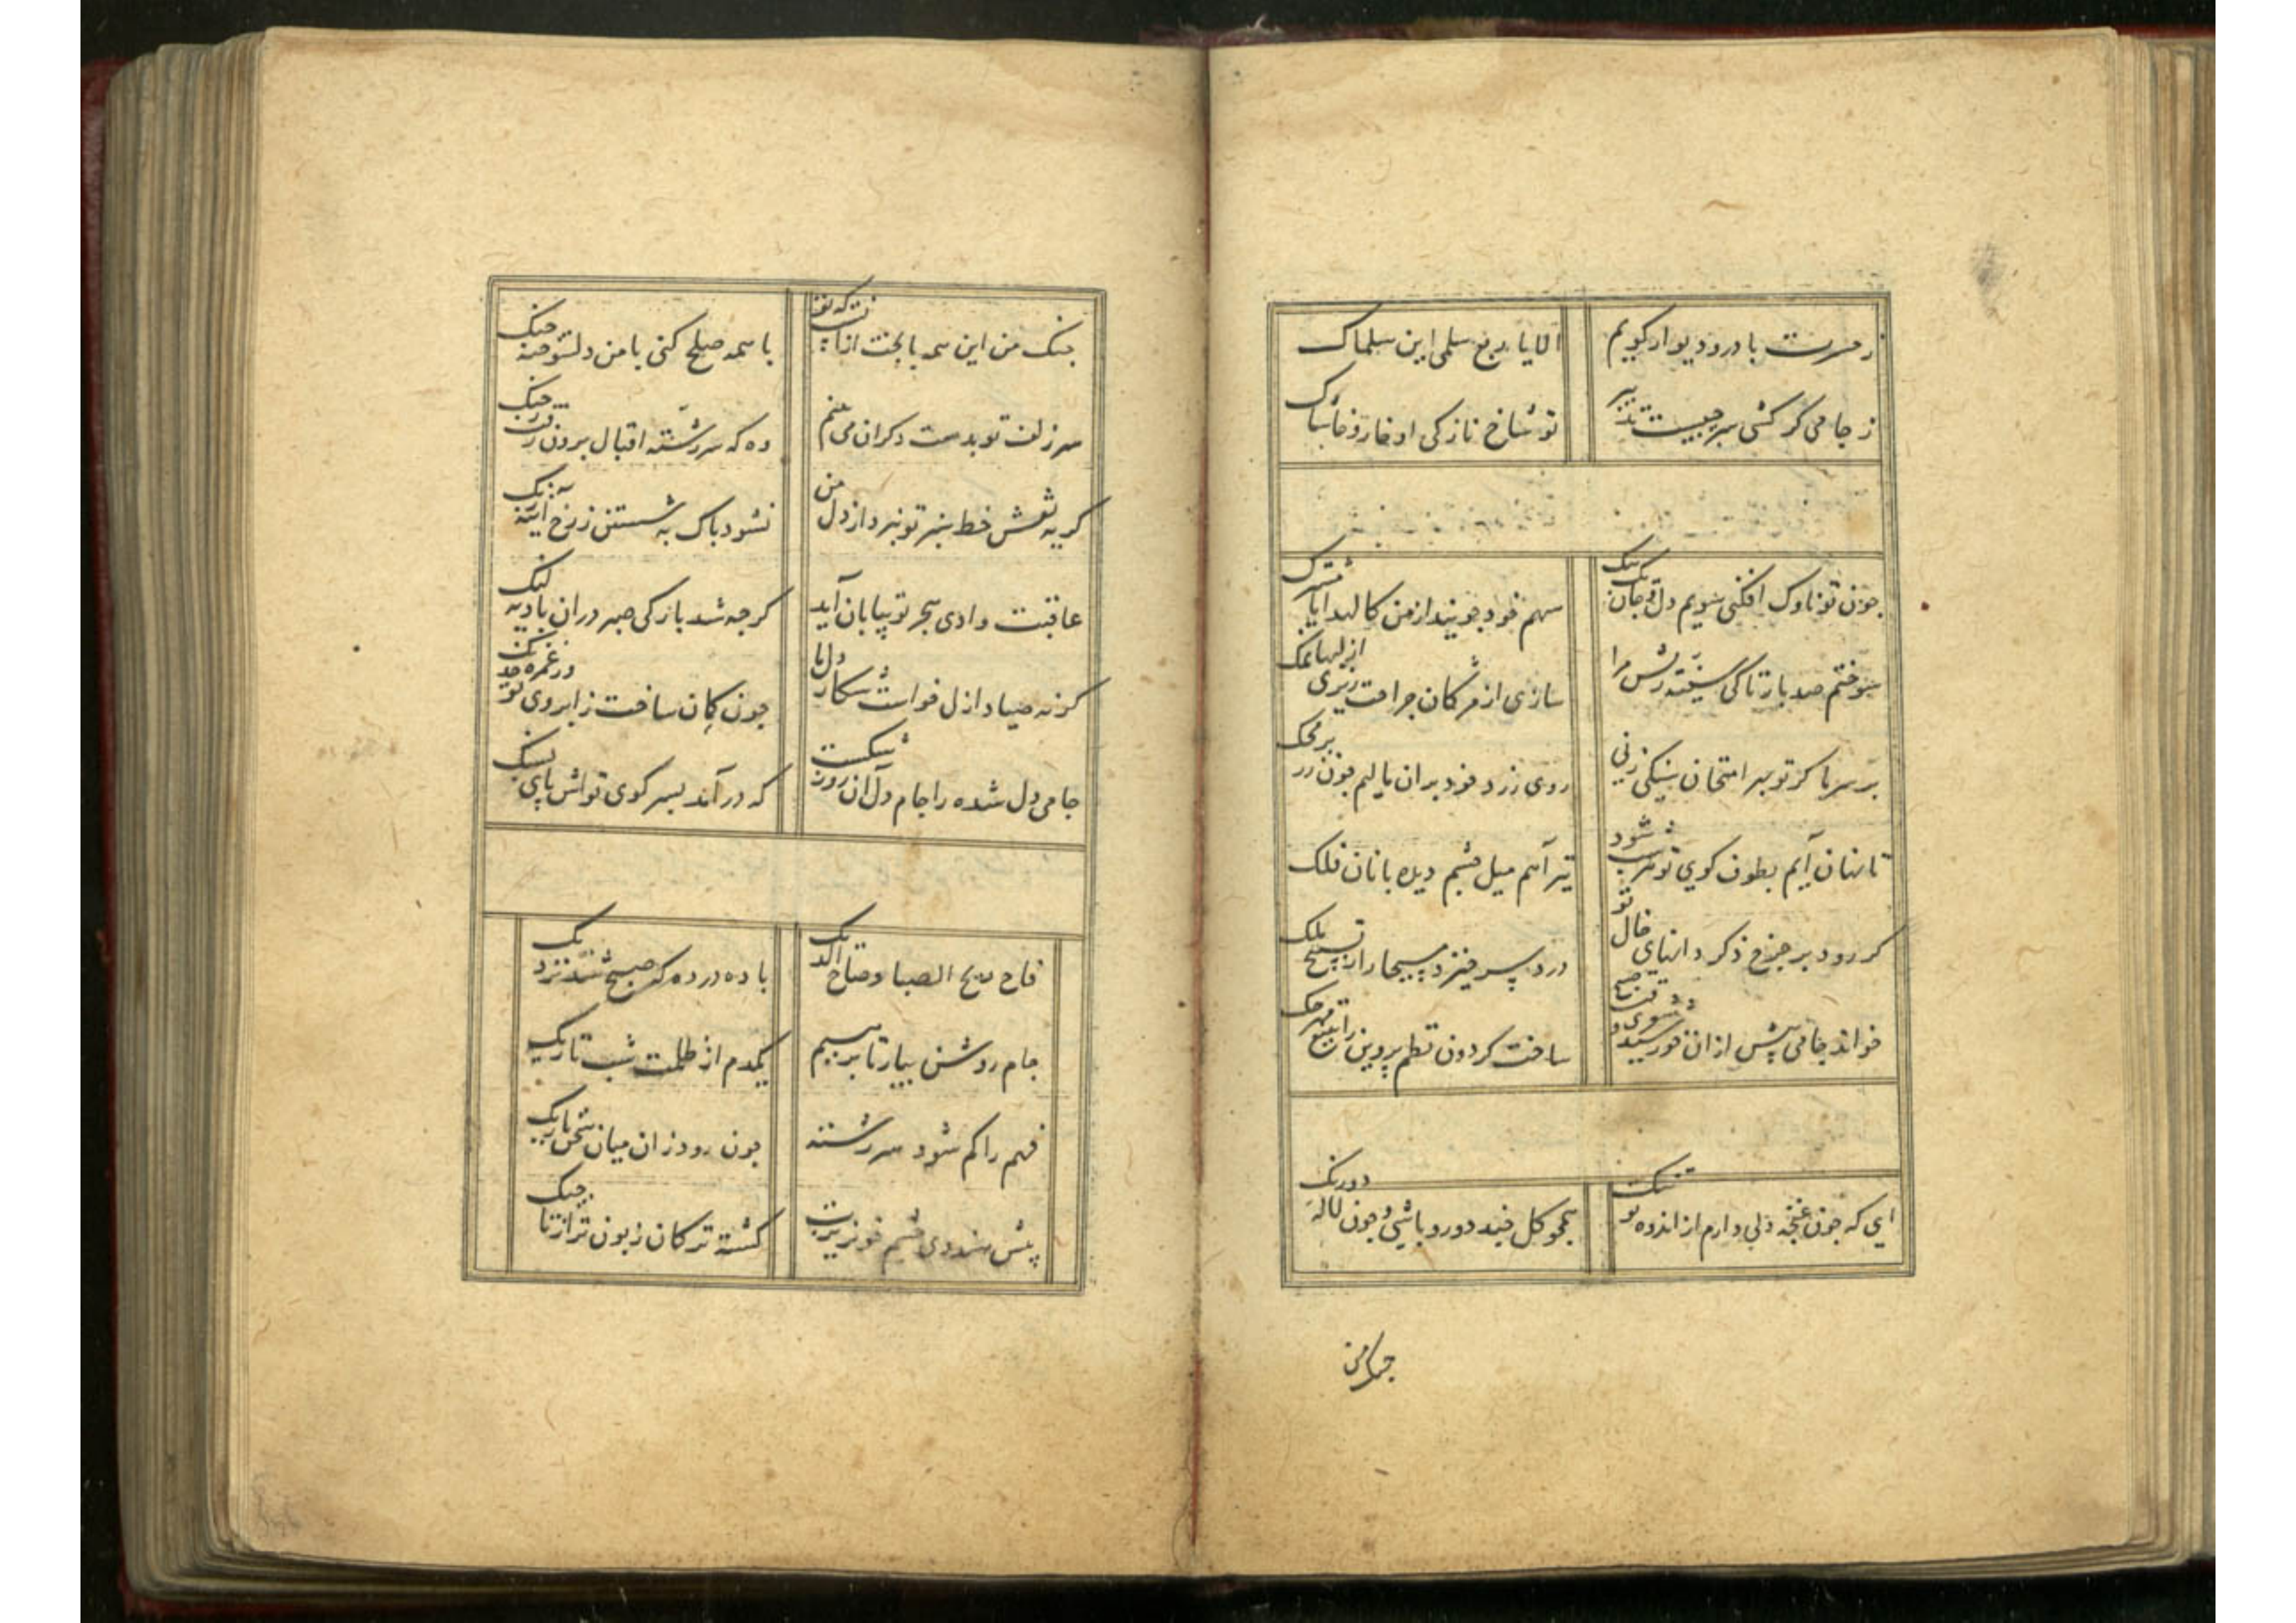 ز حسرت با در و دیوار کویم
الا یا ربع سلمی این سلماک
ز جامی کر کشی سر جیست تدبیر
تو شاخ نازکی او خار و خاشاک
چون تو ناوک افکنی سویم دل و جان یک بیک
سهم خود جویند از من کالهدایا مشترک
سوختم صد بار تا کی سینه ریش مرا
سازی از مژکان جراحت ریزی از لبها نمک
بر سر ما کر تو بهر امتحان سنکی زنی
روی زرد خود بران مالیم چون زر بر محک
تا نهان آیم بطوف کوی تو هر شب شود
تیر آهم میل چشم دیده بانان فلک
کر رود بر چرخ ذکر دانهای خال تو
در د پسر خیزد مسیحا را ز تسبیح ملک
خواند جامی پیش ازان خورشید
ساخت کردون نظم پروین را
ای که چون غنچه دلی دارم از اندوه تو تنک
همچو کل چند دورو باشی و چون لاله دو رنک
جنک من
جنک من این همه با بخت
با همه صلح کنی با من دلشده جنک
سر زلف تو بدست دکران می بینم
وه که سر رشته اقبال برون رفت ز جنک
کریه نقش خط سبز تو نبرد از دل من
نشود پاک به شستن ز رخ آینه زنک
عاقبت وادی هجر تو بپایان آید
کرچه شد بارکی صبر دران بادیه لنک
کر نه صیاد ازل خواست شکار دل ما
چون کمان ساخت ز ابروی تو وز غمزه خدنک
جامی دل شده را جام دل آن روز شکست
که در آمد بسر کوی تواش پای بسنک
فاح ریح الصبا وصاح الدیک
باده در ده که صبح شد نزدیک
جام روشن بیار تا برهیم
یکدم از ظلمت شب تاریک
فهم را کم شود سر رشته
چون رود زان میان سخن باریک
پیش هندوی چشم خونریزت
کشته ترکان زبون تر از تاجیک